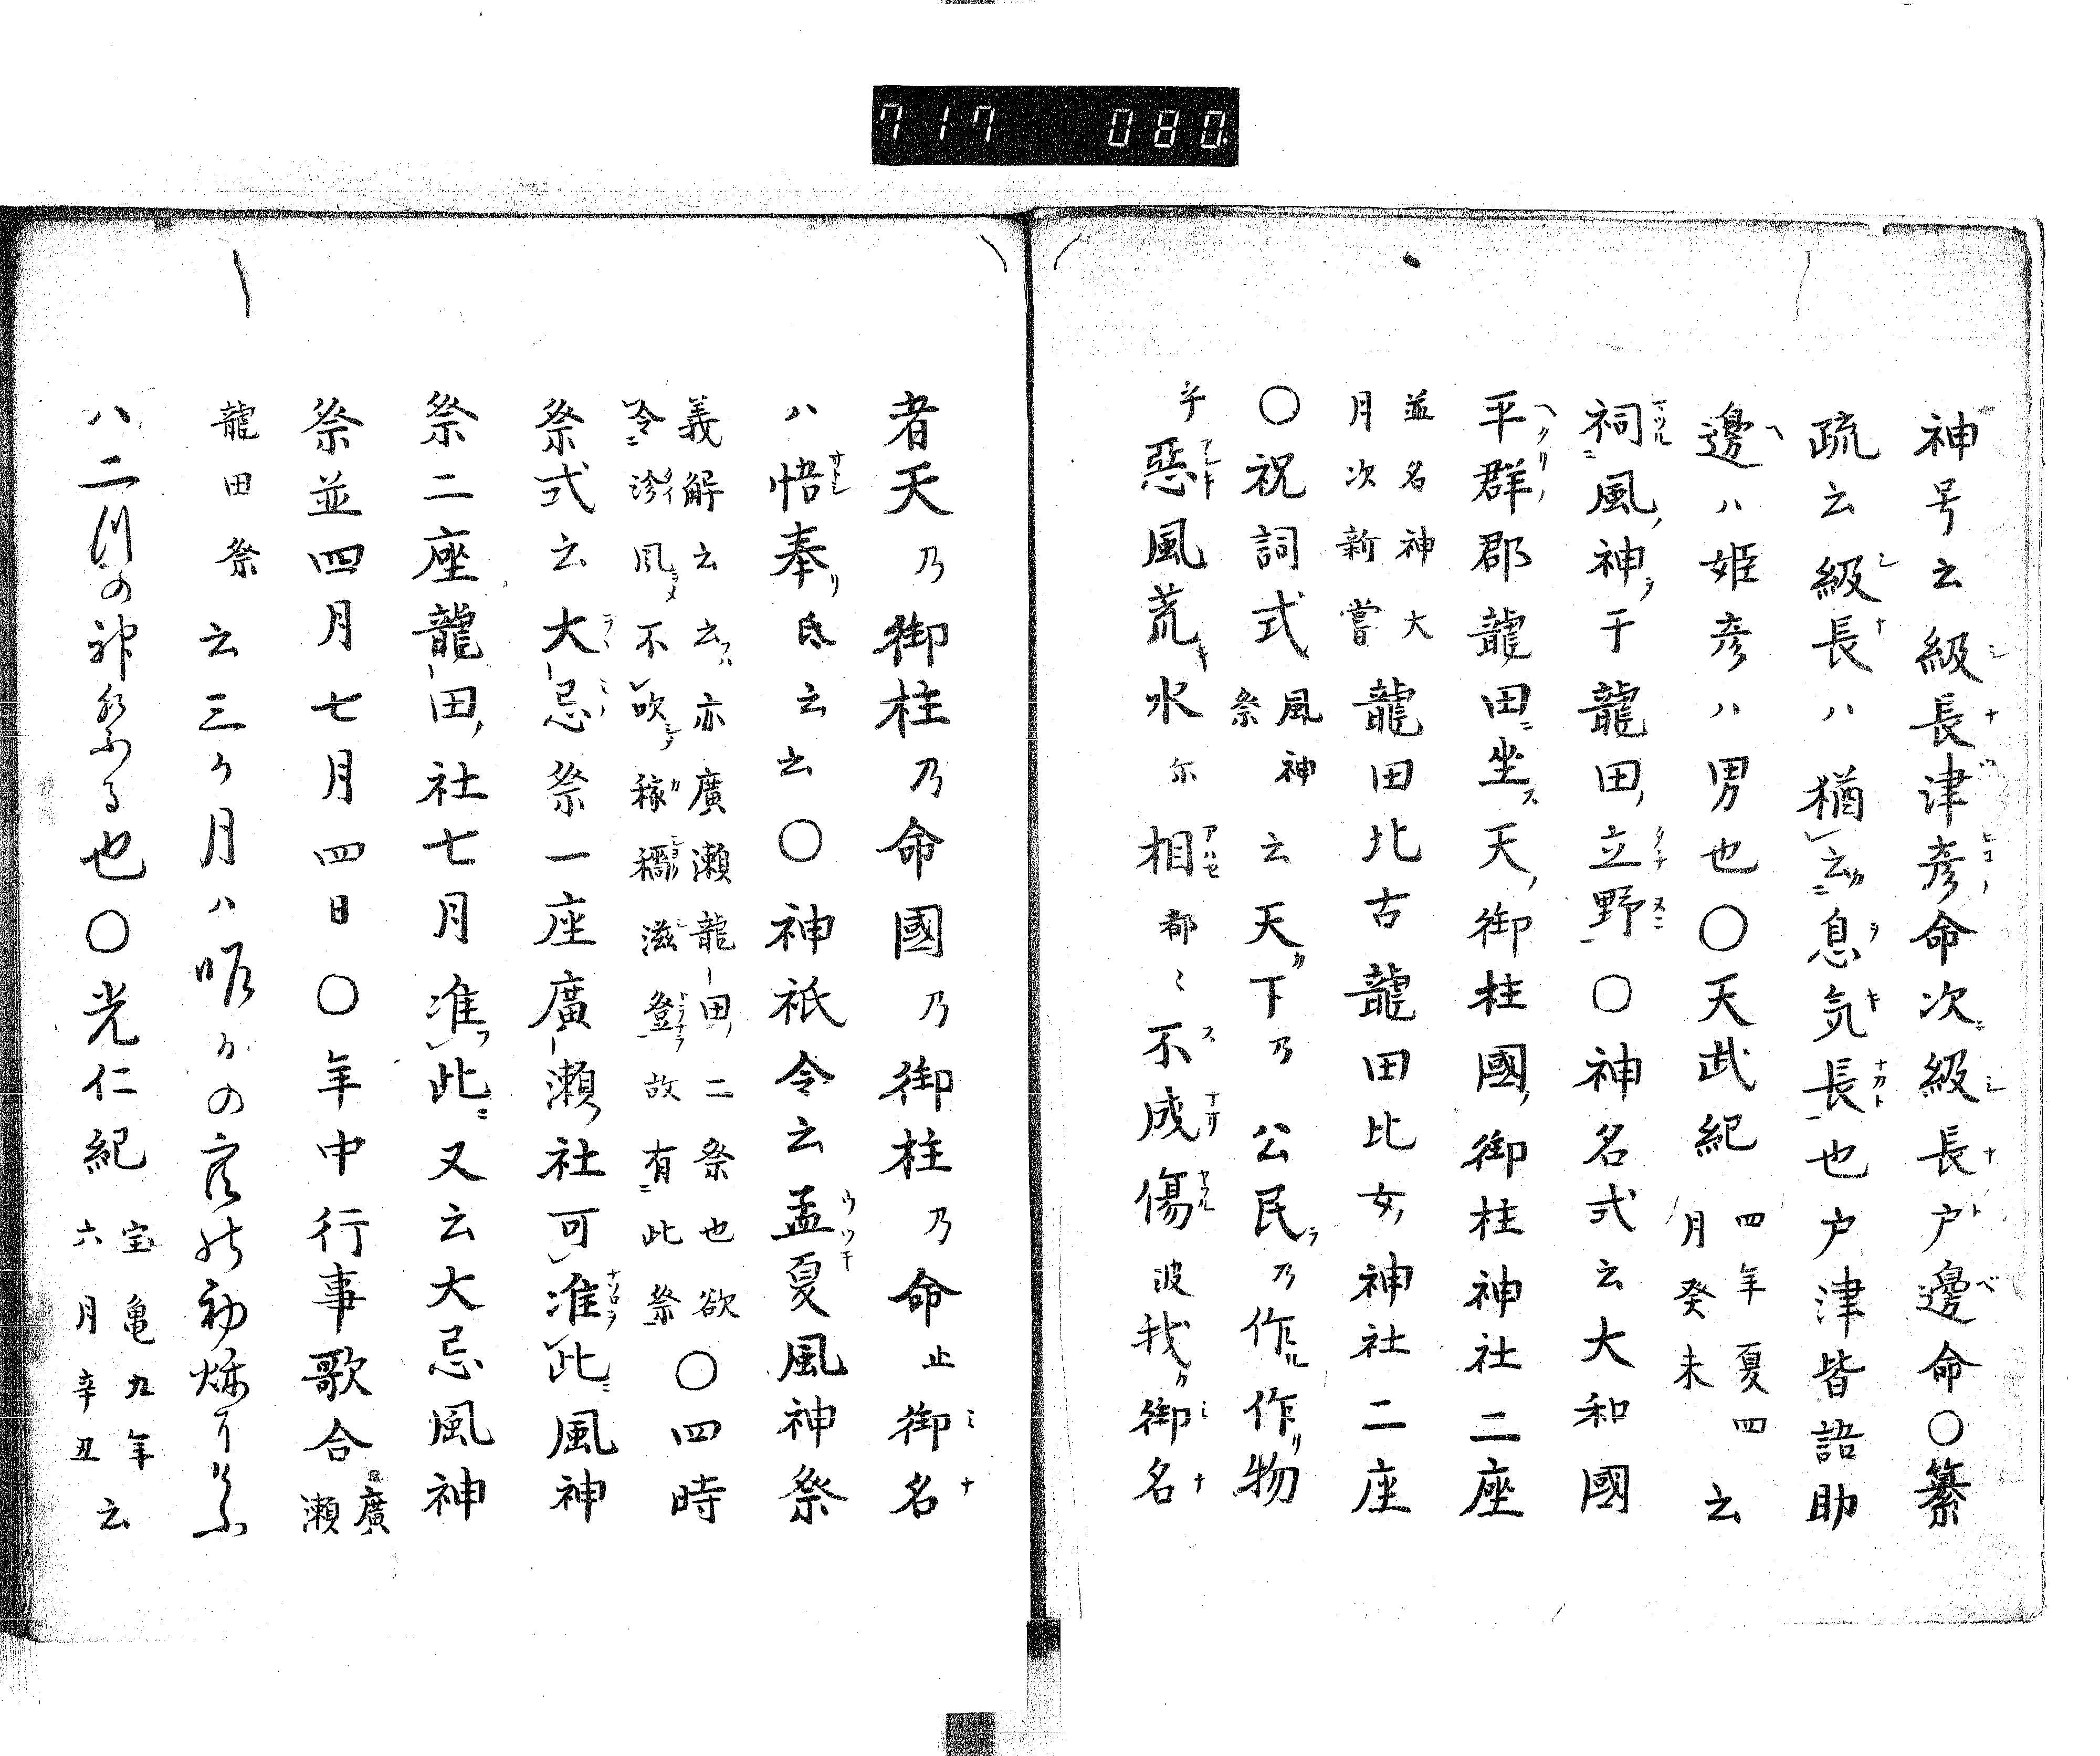 717 080
神号云級長津彦命次級長戸邊命○纂
疏云級長ハ猶云息気長也戸津皆語助
邊ハ姫彦ハ男也○天武紀四年夏四月癸未云
祠風神于龍田立野○神名式云大和國
平群郡龍田坐天御柱國御柱神社二座
並名神大月次新嘗龍田比古龍田比女神社二座
○祝詞式風神祭云天下乃公民乃作作物
乎惡風荒水尓相都々不成傷波我御名
者天乃御柱乃命國乃御柱乃命止御名
ハ悟奉氐云云○神祇令云孟夏風神祭
義解云云亦廣瀬龍田二祭也欲令沴風不吹稼穡滋登故有此祭○四時
祭式云大忌祭一座廣瀬社可准此風神
祭二座龍田社七月准此又云大忌風神
祭並四月七月四日○年中行事歌合廣瀬
龍田祭云三ケ月ハ
ハ二川の神祭る也○光仁紀宝亀九年六月辛丑云